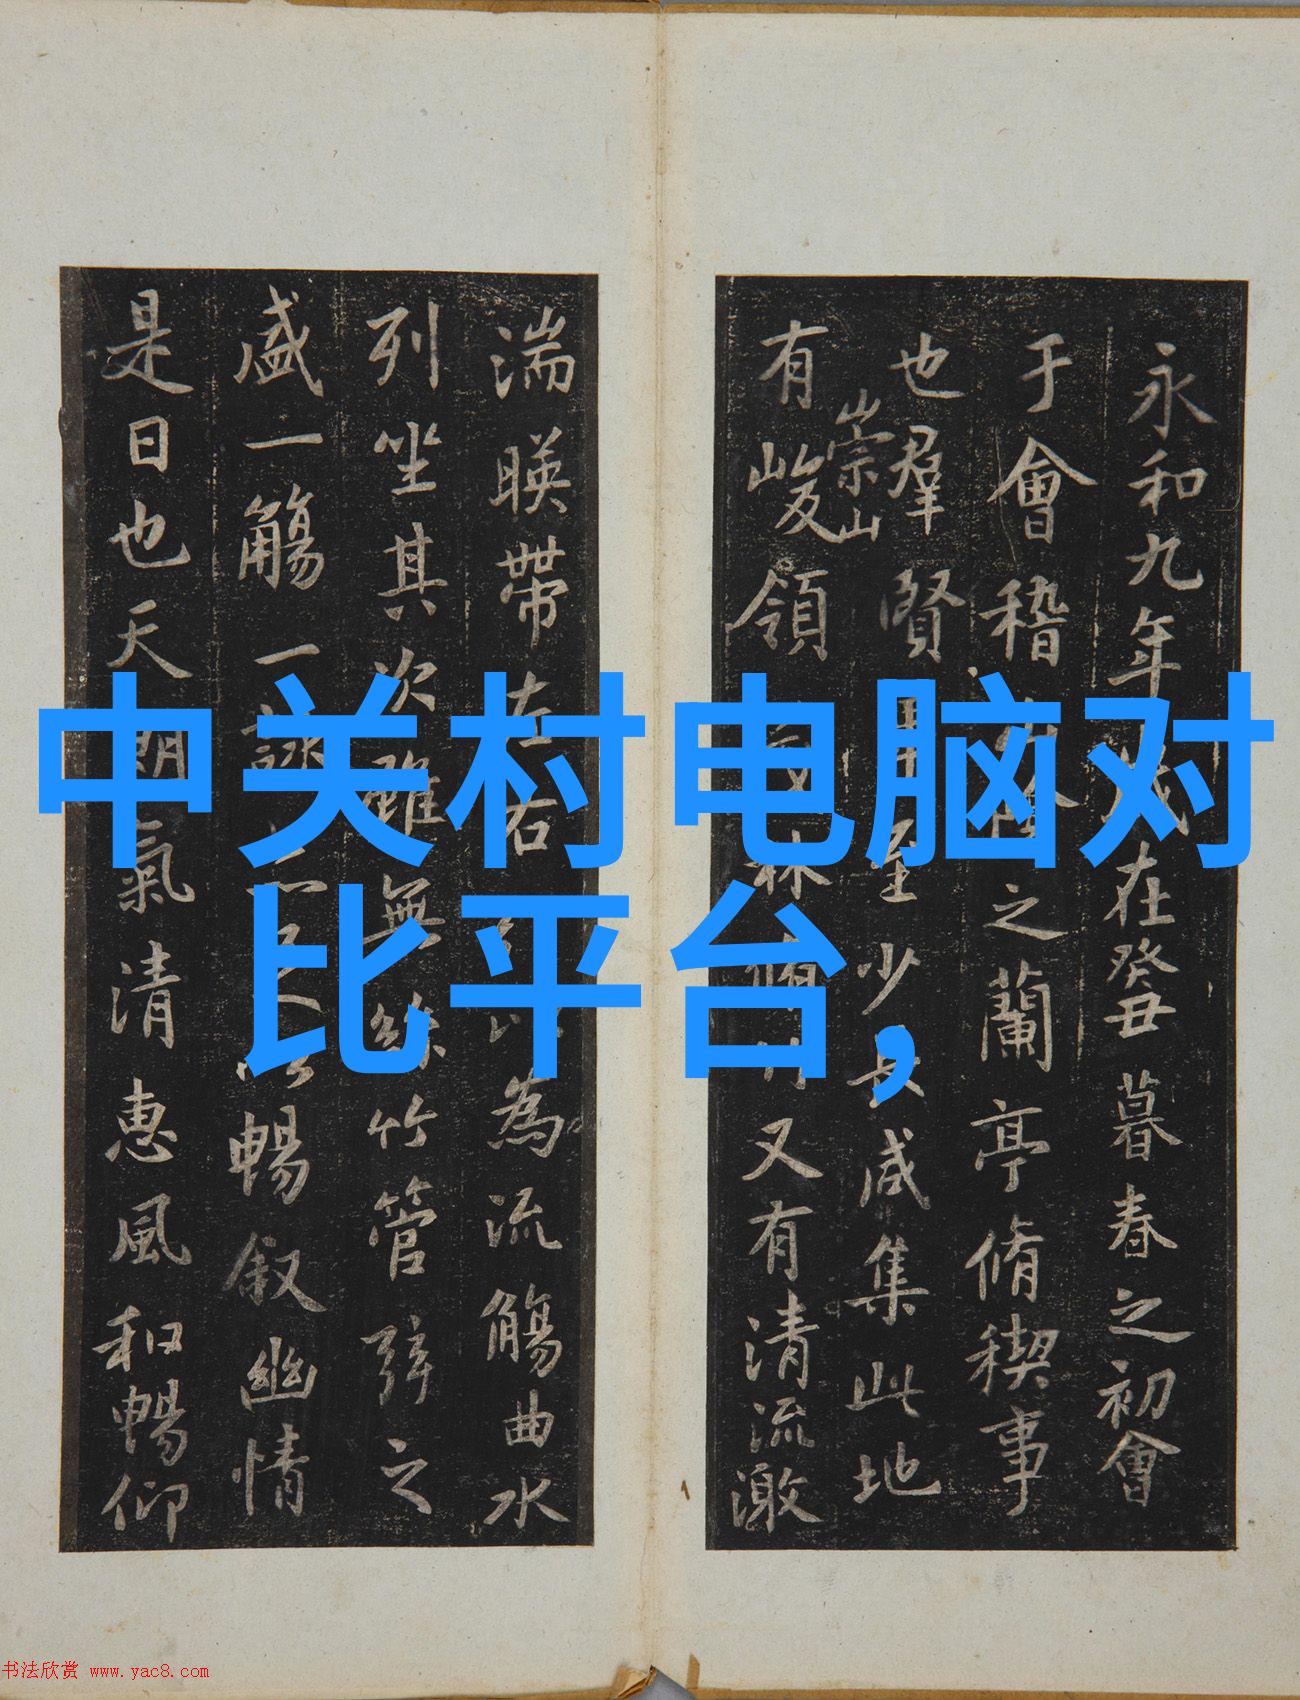 中关村电脑对
比平台,
永和九年
在癸丑暮春之初會
于會稽
之蘭亭脩稧事
也羣賢
至少長咸集此地
有
崇山
峻領
林脩竹又有清流激
湍暎帶左右
以為流觴曲水
列坐其次雖無絲竹管弦之
盛一觴一詠
暢叙幽情
是日也天朗氣清惠風和暢仰
书法欣赏 www.yac8.com